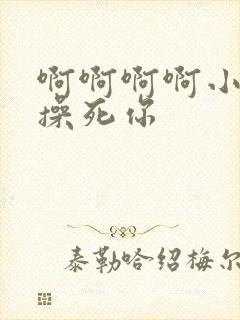 啊啊啊啊小
操死你
泰勒哈绍梅尔